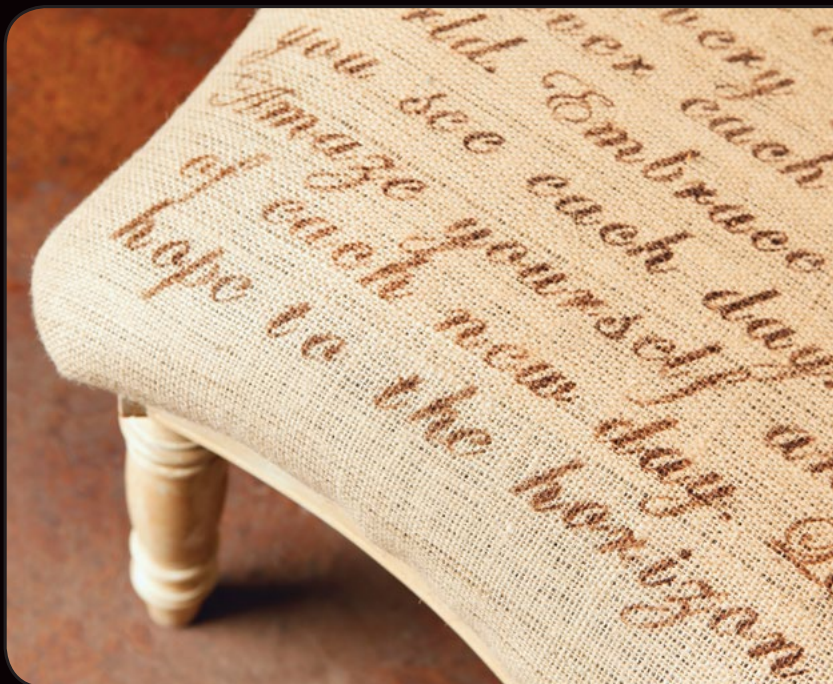 very
ver each
rld. Embrace
you see each day.
Amaze yourself an
of each new day.
hope to the horizon